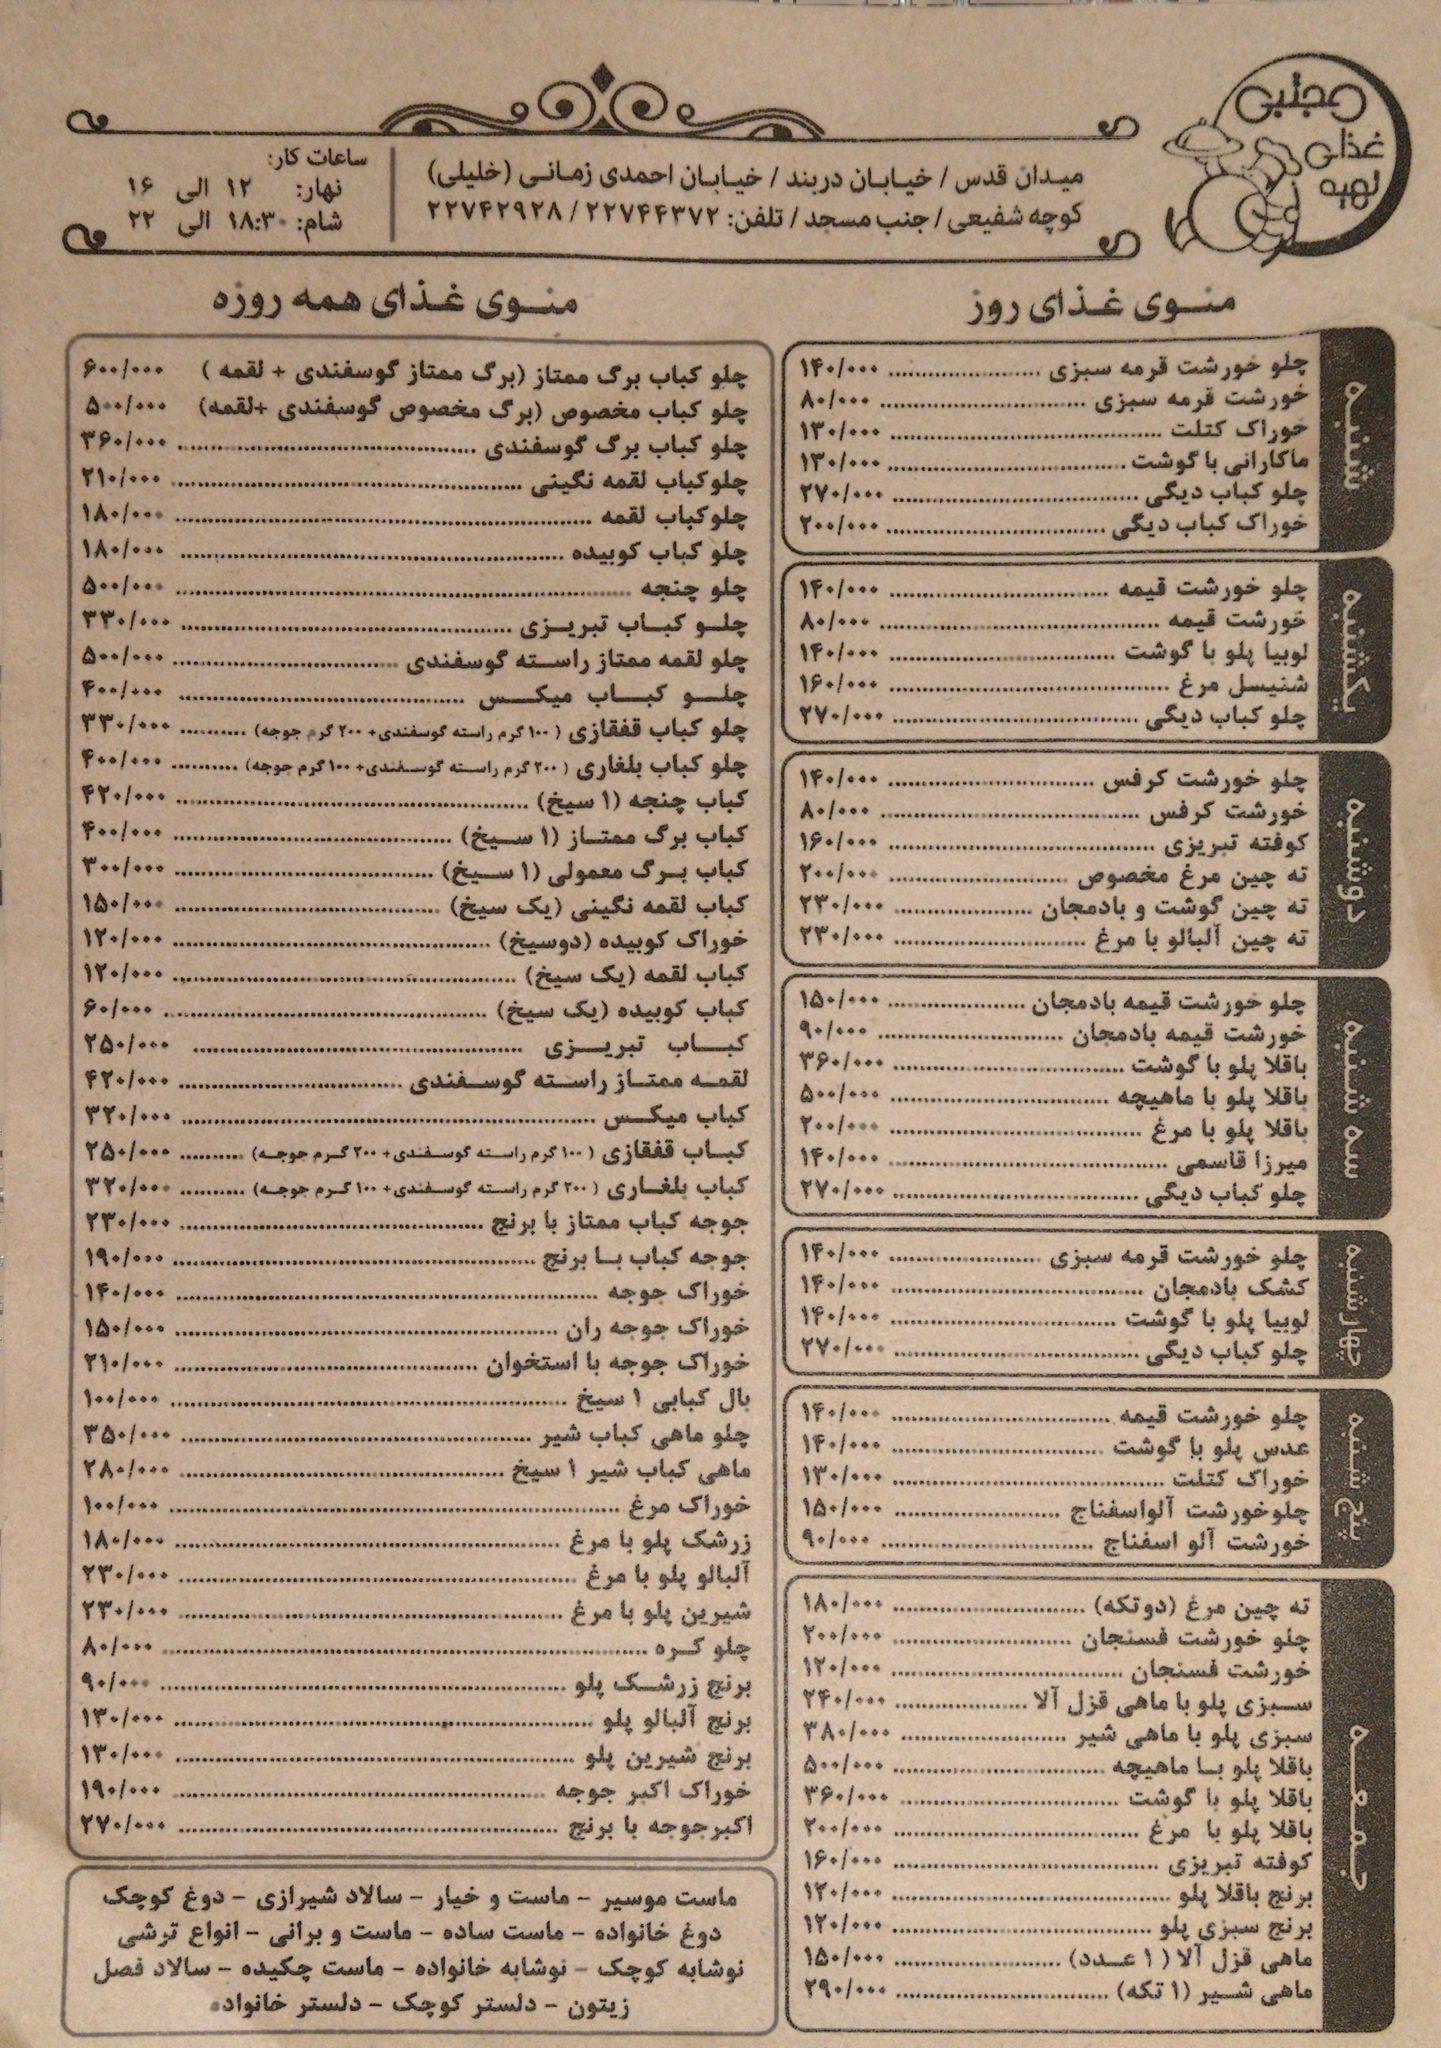 مجلسی
غذای
تهیه
میدان قدس / خیابان دربند / خیابان احمدی زمانی (خلیلی)
کوچه شفیعی / جنب مسجد / تلفن: ۲۲۷۴۴۳۷۲ / ۲۲۷۴۲۹۲۸
ساعات کار:
نهار: ۱۲ الی ۱۶
شام: ۱۸:۳۰ الی ۲۲
منوی غذای روز
شنبه
چلو خورشت قرمه سبزی ۱۴۰/۰۰۰
خورشت قرمه سبزی ۸۰/۰۰۰
خوراک کتلت ۱۳۰/۰۰۰
ماکارانی با گوشت ۱۳۰/۰۰۰
چلو کباب دیگی ۲۷۰/۰۰۰
خوراک کباب دیگی ۲۰۰/۰۰۰
یکشنبه
چلو خورشت قیمه ۱۴۰/۰۰۰
خورشت قیمه ۸۰/۰۰۰
لوبیا پلو با گوشت ۱۴۰/۰۰۰
شنیسل مرغ ۱۶۰/۰۰۰
چلو کباب دیگی ۲۷۰/۰۰۰
دوشنبه
چلو خورشت کرفس ۱۴۰/۰۰۰
خورشت کرفس ۸۰/۰۰۰
کوفته تبریزی ۱۶۰/۰۰۰
ته چین مرغ مخصوص ۲۰۰/۰۰۰
ته چین گوشت و بادمجان ۲۳۰/۰۰۰
ته چین آلبالو با مرغ ۲۳۰/۰۰۰
سه شنبه
چلو خورشت قیمه بادمجان ۱۵۰/۰۰۰
خورشت قیمه بادمجان ۹۰/۰۰۰
باقلا پلو با گوشت ۳۶۰/۰۰۰
باقلا پلو با ماهیچه ۵۰۰/۰۰۰
باقلا پلو با مرغ ۲۰۰/۰۰۰
میرزا قاسمی ۱۴۰/۰۰۰
چلو کباب دیگی ۲۷۰/۰۰۰
چهارشنبه
چلو خورشت قرمه سبزی ۱۴۰/۰۰۰
کشک بادمجان ۱۴۰/۰۰۰
لوبیا پلو با گوشت ۱۴۰/۰۰۰
چلو کباب دیگی ۲۷۰/۰۰۰
پنج شنبه
چلو خورشت قیمه ۱۴۰/۰۰۰
عدس پلو با گوشت ۱۴۰/۰۰۰
خوراک کتلت ۱۳۰/۰۰۰
چلوخورشت آلواسفناج ۱۵۰/۰۰۰
خورشت آلو اسفناج ۹۰/۰۰۰
جمعه
ته چین مرغ (دوتکه) ۱۸۰/۰۰۰
چلو خورشت فسنجان ۲۰۰/۰۰۰
خورشت فسنجان ۱۲۰/۰۰۰
سبزی پلو با ماهی قزل آلا ۲۴۰/۰۰۰
سبزی پلو با ماهی شیر ۳۸۰/۰۰۰
باقلا پلو با ماهیچه ۵۰۰/۰۰۰
باقلا پلو با گوشت ۳۶۰/۰۰۰
باقلا پلو با مرغ ۲۰۰/۰۰۰
کوفته تبریزی ۱۶۰/۰۰۰
برنج باقلا پلو ۱۲۰/۰۰۰
برنج سبزی پلو ۱۲۰/۰۰۰
ماهی قزل آلا (۱ عدد) ۱۵۰/۰۰۰
ماهی شیر (۱ تکه) ۲۹۰/۰۰۰
منوی غذای همه روزه
چلو کباب برگ ممتاز (برگ ممتاز گوسفندی + لقمه ) ۶۰۰/۰۰۰
چلو کباب مخصوص (برگ مخصوص گوسفندی +لقمه) ۵۰۰/۰۰۰
چلو کباب برگ گوسفندی ۳۶۰/۰۰۰
چلوکباب لقمه نگینی ۲۱۰/۰۰۰
چلوکباب لقمه ۱۸۰/۰۰۰
چلو کباب کوبیده ۱۸۰/۰۰۰
چلو چنجه ۵۰۰/۰۰۰
چلو کباب تبریزی ۳۳۰/۰۰۰
چلو لقمه ممتاز راسته گوسفندی ۵۰۰/۰۰۰
چلو کباب میکس ۴۰۰/۰۰۰
چلو کباب قفقازی ( ۱۰۰ گرم راسته گوسفندی+ ۲۰۰ گرم جوجه) ۳۳۰/۰۰۰
چلو کباب بلغاری ( ۲۰۰ گرم راسته گوسفندی+ ۱۰۰ گرم جوجه) ۴۰۰/۰۰۰
کباب چنجه (۱ سیخ) ۴۲۰/۰۰۰
کباب برگ ممتاز (۱ سیخ) ۴۰۰/۰۰۰
کباب برگ معمولی (۱ سیخ) ۳۰۰/۰۰۰
کباب لقمه نگینی (یک سیخ) ۱۵۰/۰۰۰
خوراک کوبیده (دوسیخ) ۱۲۰/۰۰۰
کباب لقمه (یک سیخ) ۱۲۰/۰۰۰
کباب کوبیده (یک سیخ) ۶۰/۰۰۰
کباب تبریزی ۲۵۰/۰۰۰
لقمه ممتاز راسته گوسفندی ۴۲۰/۰۰۰
کباب میکس ۳۲۰/۰۰۰
کباب قفقازی ( ۱۰۰ گرم راسته گوسفندی+ ۲۰۰ گرم جوجه) ۲۵۰/۰۰۰
کباب بلغاری ( ۲۰۰ گرم راسته گوسفندی+ ۱۰۰ گرم جوجه) ۳۲۰/۰۰۰
جوجه کباب ممتاز با برنج ۲۳۰/۰۰۰
جوجه کباب با برنج ۱۹۰/۰۰۰
خوراک جوجه ۱۴۰/۰۰۰
خوراک جوجه ران ۱۵۰/۰۰۰
خوراک جوجه با استخوان ۲۱۰/۰۰۰
بال کبابی ۱ سیخ ۱۰۰/۰۰۰
چلو ماهی کباب شیر ۳۵۰/۰۰۰
ماهی کباب شیر ۱ سیخ ۲۸۰/۰۰۰
خوراک مرغ ۱۰۰/۰۰۰
زرشک پلو با مرغ ۱۸۰/۰۰۰
آلبالو پلو با مرغ ۲۳۰/۰۰۰
شیرین پلو با مرغ ۲۳۰/۰۰۰
چلو کره ۸۰/۰۰۰
برنج زرشک پلو ۹۰/۰۰۰
برنج آلبالو پلو ۱۳۰/۰۰۰
برنج شیرین پلو ۱۳۰/۰۰۰
خوراک اکبر جوجه ۱۹۰/۰۰۰
اکبرجوجه با برنج ۲۷۰/۰۰۰
ماست موسیر - ماست و خیار - سالاد شیرازی - دوغ کوچک
دوغ خانواده - ماست ساده - ماست و برانی - انواع ترشی
نوشابه کوچک - نوشابه خانواده - ماست چکیده - سالاد فصل
زیتون - دلستر کوچک - دلستر خانواده